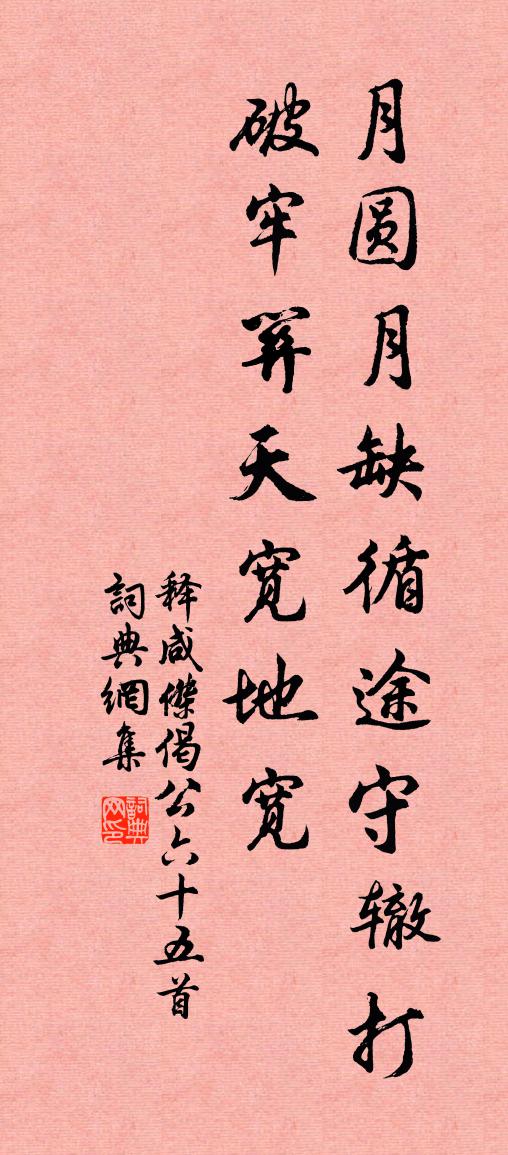 月圆月缺循途守辙打
破牢関天宽地宽
释咸傑偈公六十五首
詞典網集
詞典网印